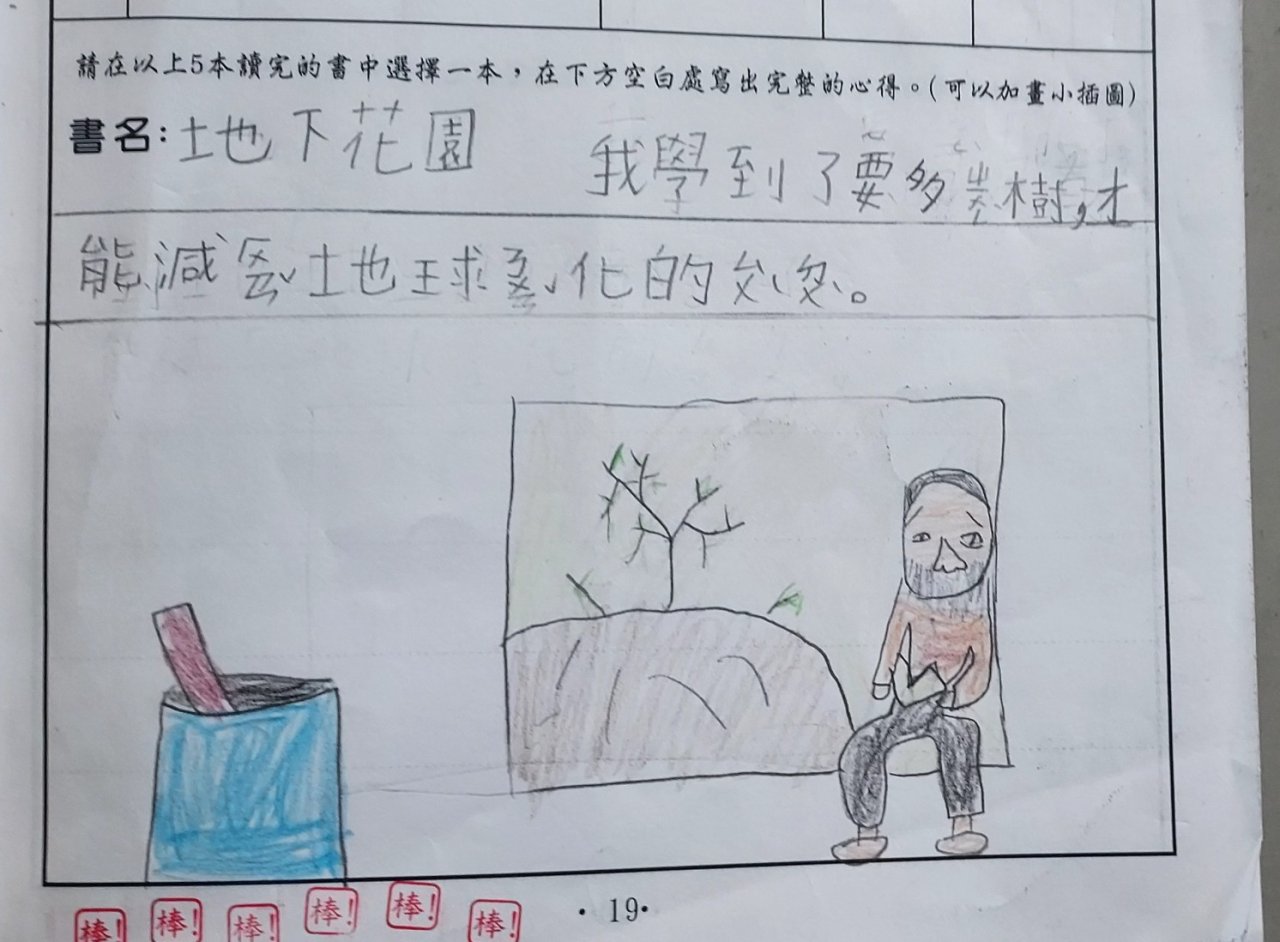 請在以上5本讀完的書中選擇一本，在下方空白處寫出完整的心得。(可以加畫小插圖)
書名：地下花園 我學到了要多樹，才
能減地球化的。
·19·
棒！ 棒！ 棒！ 棒！ 棒！ 棒！